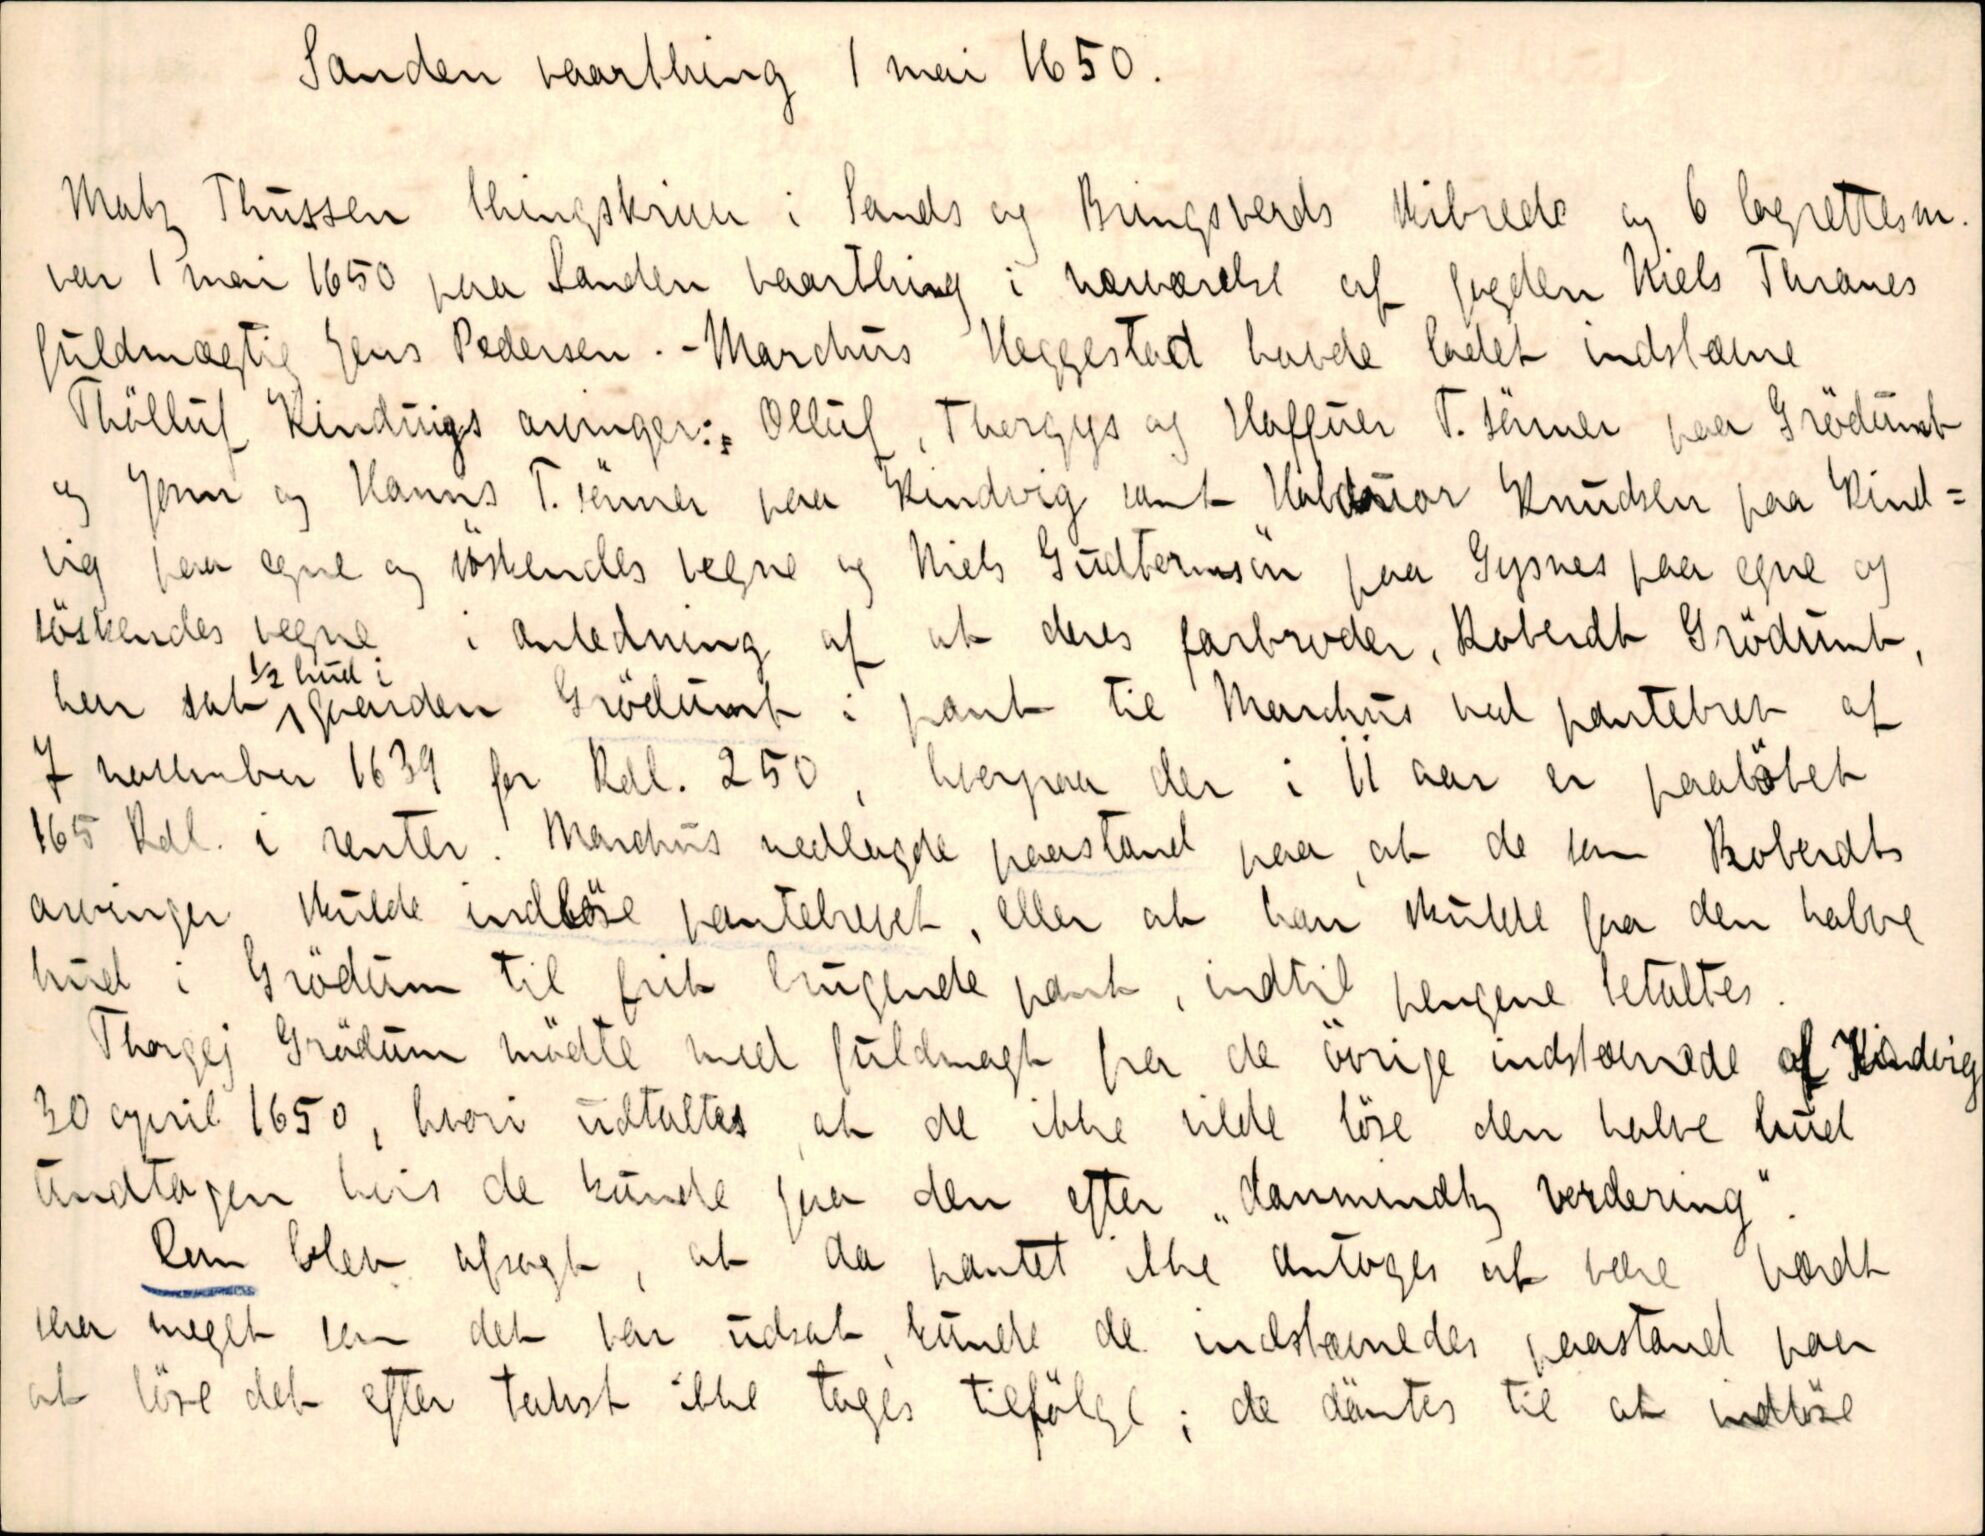 Sanden vaarthing 1 mai 1650.
Matz Thussen thingskriuer i Sands og Bringsverds skibrede og 6 lagrettesm.
var 1 mai 1650 paa Sanden vaarthing i nærværelse af fogden Niels Thranes
fuldmægtig Jens Pedersen. - Marchus Heggestad havde ladet indstævne
Thölluf Kinduigs arvinger: Olluf, Thorgys og Haffuer T. sönner paa Grödumb
og Jonn og Hanns T. sönner paa Kindvig samt Halduor Knudsen paa Kind=
vig paa egne og söskendes vegne og Niels Gudtormsön paa Gysnes paa egne og
söskendes vegne i anledning af at deres farbroder, Roberdt Grödumb,
har sat 1/2 hud i gaarden Grödumb i pant til Marchus ved pantebrev af
7 november 1639 for Rdl. 250, hvorpaa der i 11 aar er paalöbet
165 Rdl. i renter. Marchus nedlagde paastand paa, at de som Roberdts
arvinger skulde indlöse pantebrevet, eller at han skulde faa den halve
hud i Grödum til frit brugende pant, indtil pengene betaltes.
Thorgej Grödum mödte med fuldmagt fra de övrige indstævnede af Kindvig
30 april 1650, hvori udtaltes at de ikke vilde löse den halve hud
undtagen hvis de kunde faa den efter „danmindtz verdering".
Dom blev afsagt, at da pantet ikke antoges at være værdt
saa meget som det var udsat, kunde de indstævnedes paastand paa
at löse det efter takst ikke tages tilfölge; de dömtes til at indlöse